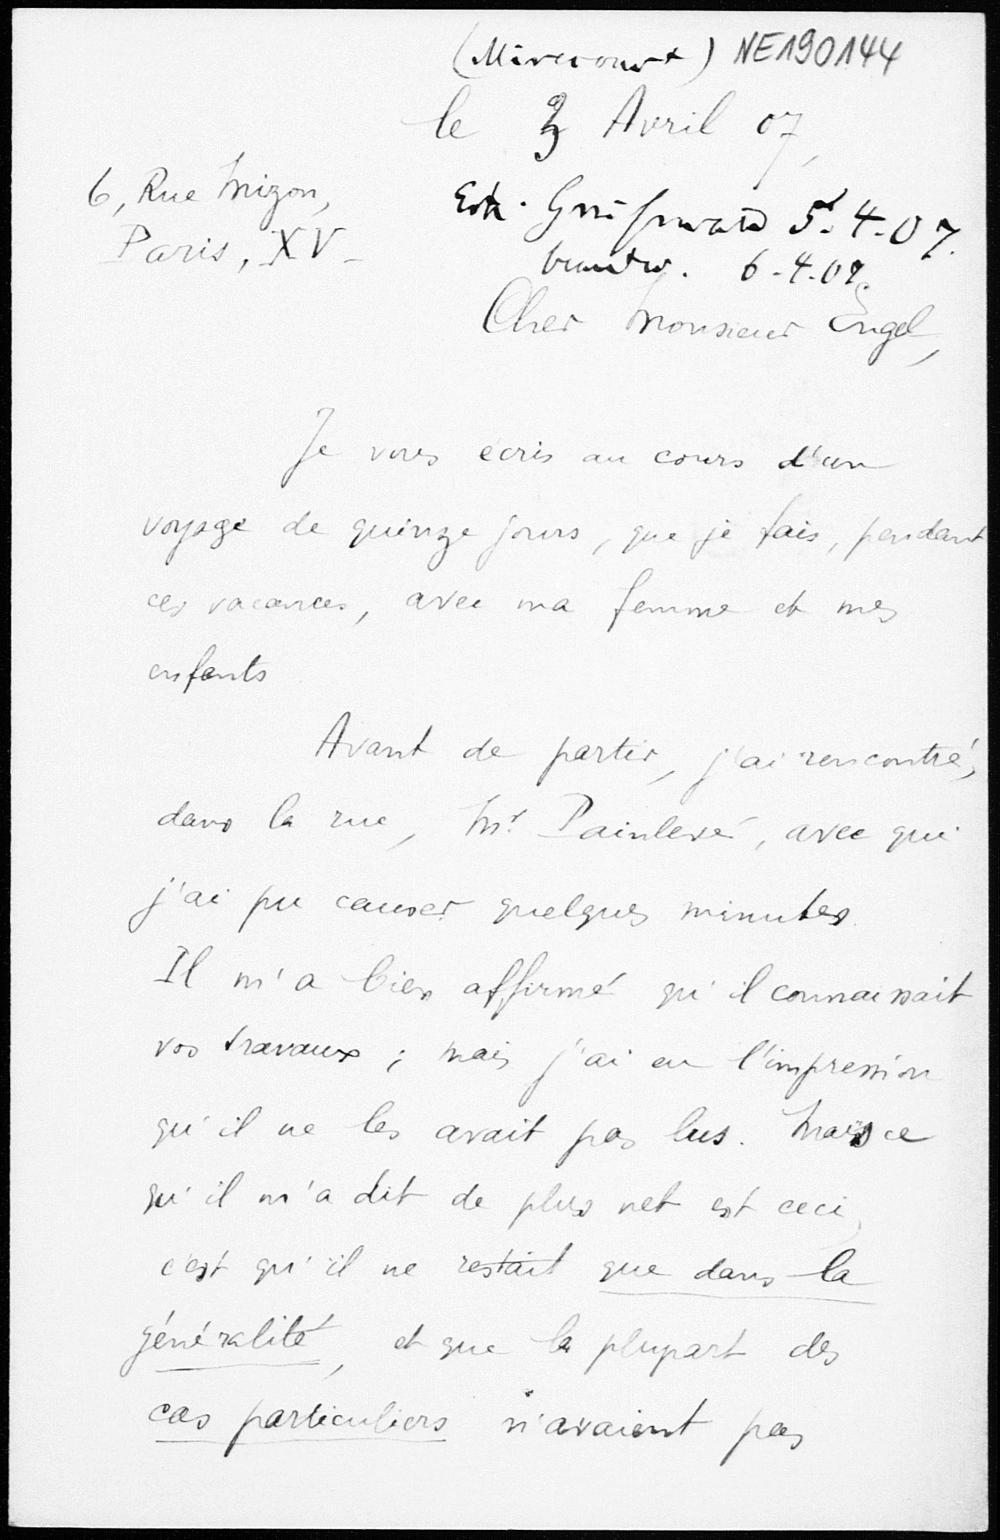 (Mirecourt) NE190144
le 3 Avril 07,
6, Rue Mizon,
Paris, XV
Erh. Greifswald 5.4.07.
beantw. 6.4.07.
Cher Monsieur Engel,
Je vous écris au cours d'un
voyage de quinze jours, que je fais, pendant
ces vacances, avec ma femme et mes
enfants
Avant de partir, j'ai rencontré,
dans la rue, Mr. Painlevé, avec qui
j'ai pu causer quelques minutes.
Il m'a bien affirmé qu'il connaissait
vos travaux ; mais j'ai eu l'impression
qu'il ne les avait pas lus. Mais ce
qu'il m'a dit de plus net est ceci,
c'est qu'il ne restait que dans la
généralité, et que la plupart des
cas particuliers n'avaient pas